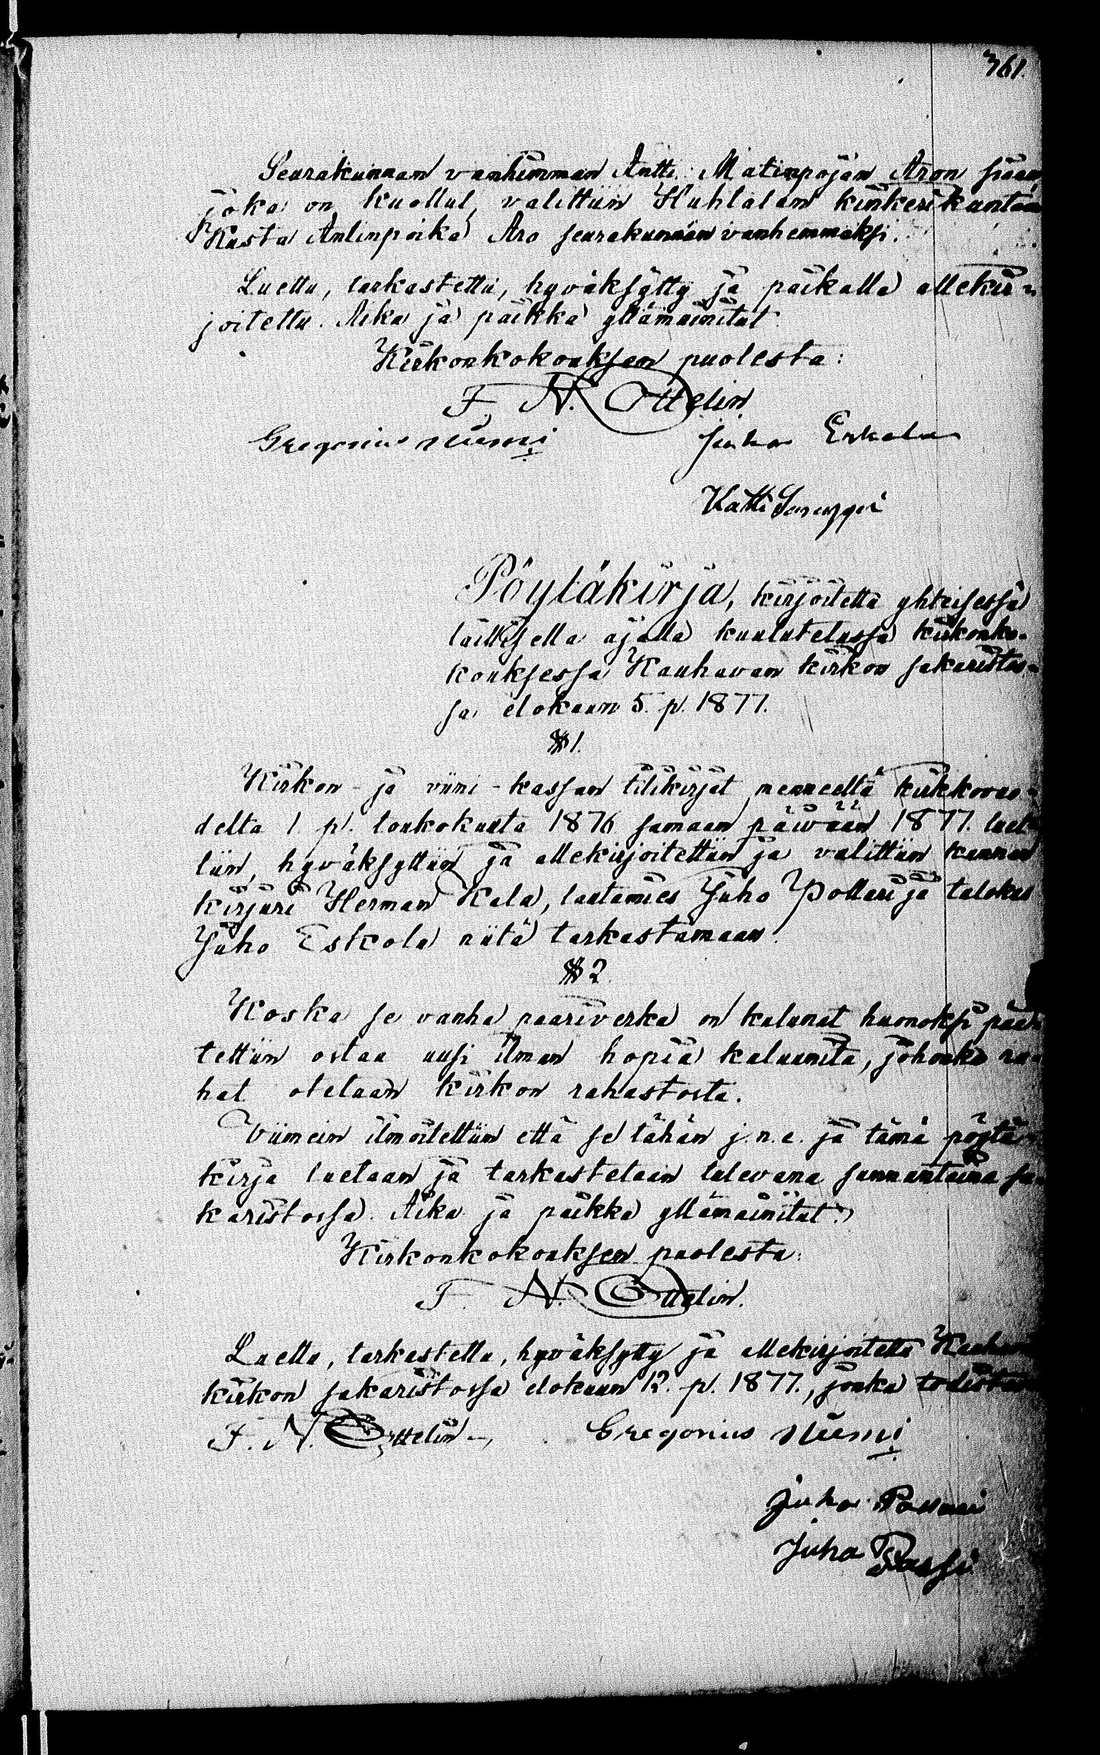 361.
Seurakunnan vanhimman Antti Matinpojan Aron siaan
joka on kuollut, valittiin Huhtalan kinkerikuntaan
Kusta Antinpoika Aro seurakunnan vanhemmaksi.
Luettu, tarkastettu, hyväksytty ja paikalla allekir-
joitettu. Aika ja paikka yllämainitut.
Kirkonkokouksen puolesta:
F. N. Ottelin
Gregorius Niemi Juho Eskola
Matti
Pöytäkirja, kirjoitettu yhteisessä
laillisella ajalla kuulutetussa kirkonko-
kouksessa Kauhavan kirkon sakaristos-
sa elokuun 5. p. 1877.
§ 1.
Kirkon- ja viini-kassan tilikirjat menneeltä kirkkovuo-
delta 1 p. toukokuuta 1876 samaan päivään 1877 luet-
tiin, hyväksyttiin ja allekirjoitettiin ja valittiin kunnan
kirjuri Herman Kala, lautamies Juho Pollari ja talokas
Juho Eskola niitä tarkastamaan.
§ 2.
Koska se vanha paariverka on kulunut huonoksi pää-
tettiin ostaa uusi ilman hopia kaluunita, johonka ra-
hat otetaan kirkon rahastosta.
Viimein ilmoitettiin että se tähän j.n.e. ja tämä pöytä-
kirja luetaan ja tarkastetaan tulevana sunnuntaina sa-
karistossa. Aika ja paikka yllämainitut.
Kirkonkokouksen puolesta:
F. N. Ottelin.
Luettu, tarkastettu, hyväksytty ja allekirjoitettu Kauhavan
kirkon sakaristossa elokuun 12. p. 1877., jonka todistaa
F. N. Ottelin Gregorius Niemi
Juho Pollari
Juha Passi